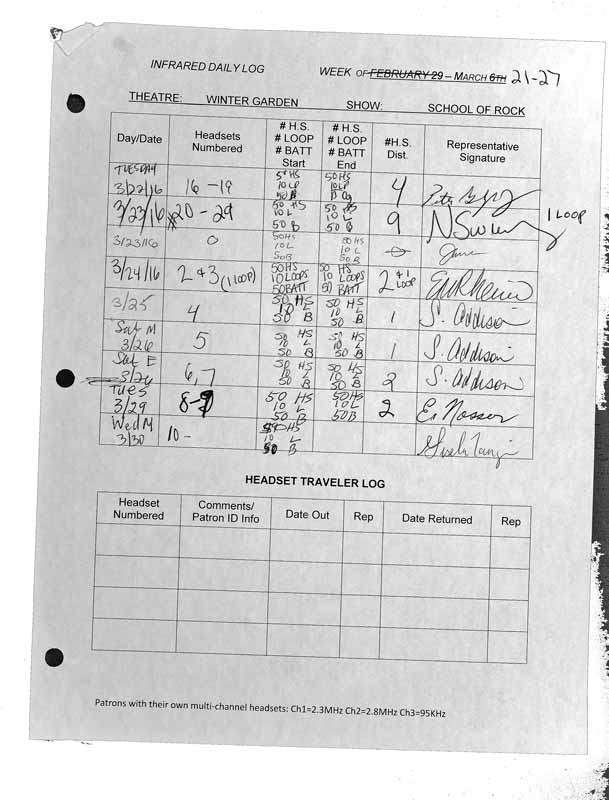 INFRARED DAILY LOG WEEK OF FEBRUARY 29 – MARCH 6TH 21-27
THEATRE: WINTER GARDEN SHOW: SCHOOL OF ROCK
Day/Date
Headsets
Numbered
# H.S.
# LOOP
# BATT
Start
# H.S.
# LOOP
# BATT
End
#H.S.
Dist.
Representative
Signature
TUESDAY
3/22/16
16 - 19
10 LP
50 HS
10 LP
4
3/23/16
20 - 29
50 HS
10 L
50 B
50 HS
10 L
50 B
9
1 LOOP
3/23/16
0
50HS
10 L
50B
50 HS
10 L
50 B
3/24/16
2 & 3 (1 LOOP)
50HS
10 LOOPS
50 BATT
50 HS
10 LOOPS
50 BATT
2 & 1
LOOP
3/25
4
50 HS
10 L
50 B
50 HS
10 L
50 B
1
S. Addison
Sat M
3/26
5
50 HS
10 L
50 B
50 HS
10 L
50 B
1
S. Addison
Sat E
3/26
6,7
50 HS
10 L
50 B
50 HS
10 L
50 B
2
S. Addison
TUES
3/29
50 HS
10 L
50 B
50HS
10 L
50B
2
Wed M
3/30
10 -
HS
10 L
50 B
HEADSET TRAVELER LOG
Headset
Numbered
Comments/
Patron ID Info
Date Out
Rep
Date Returned
Rep
Patrons with their own multi-channel headsets: Ch1=2.3MHz Ch2=2.8MHz Ch3=95KHz